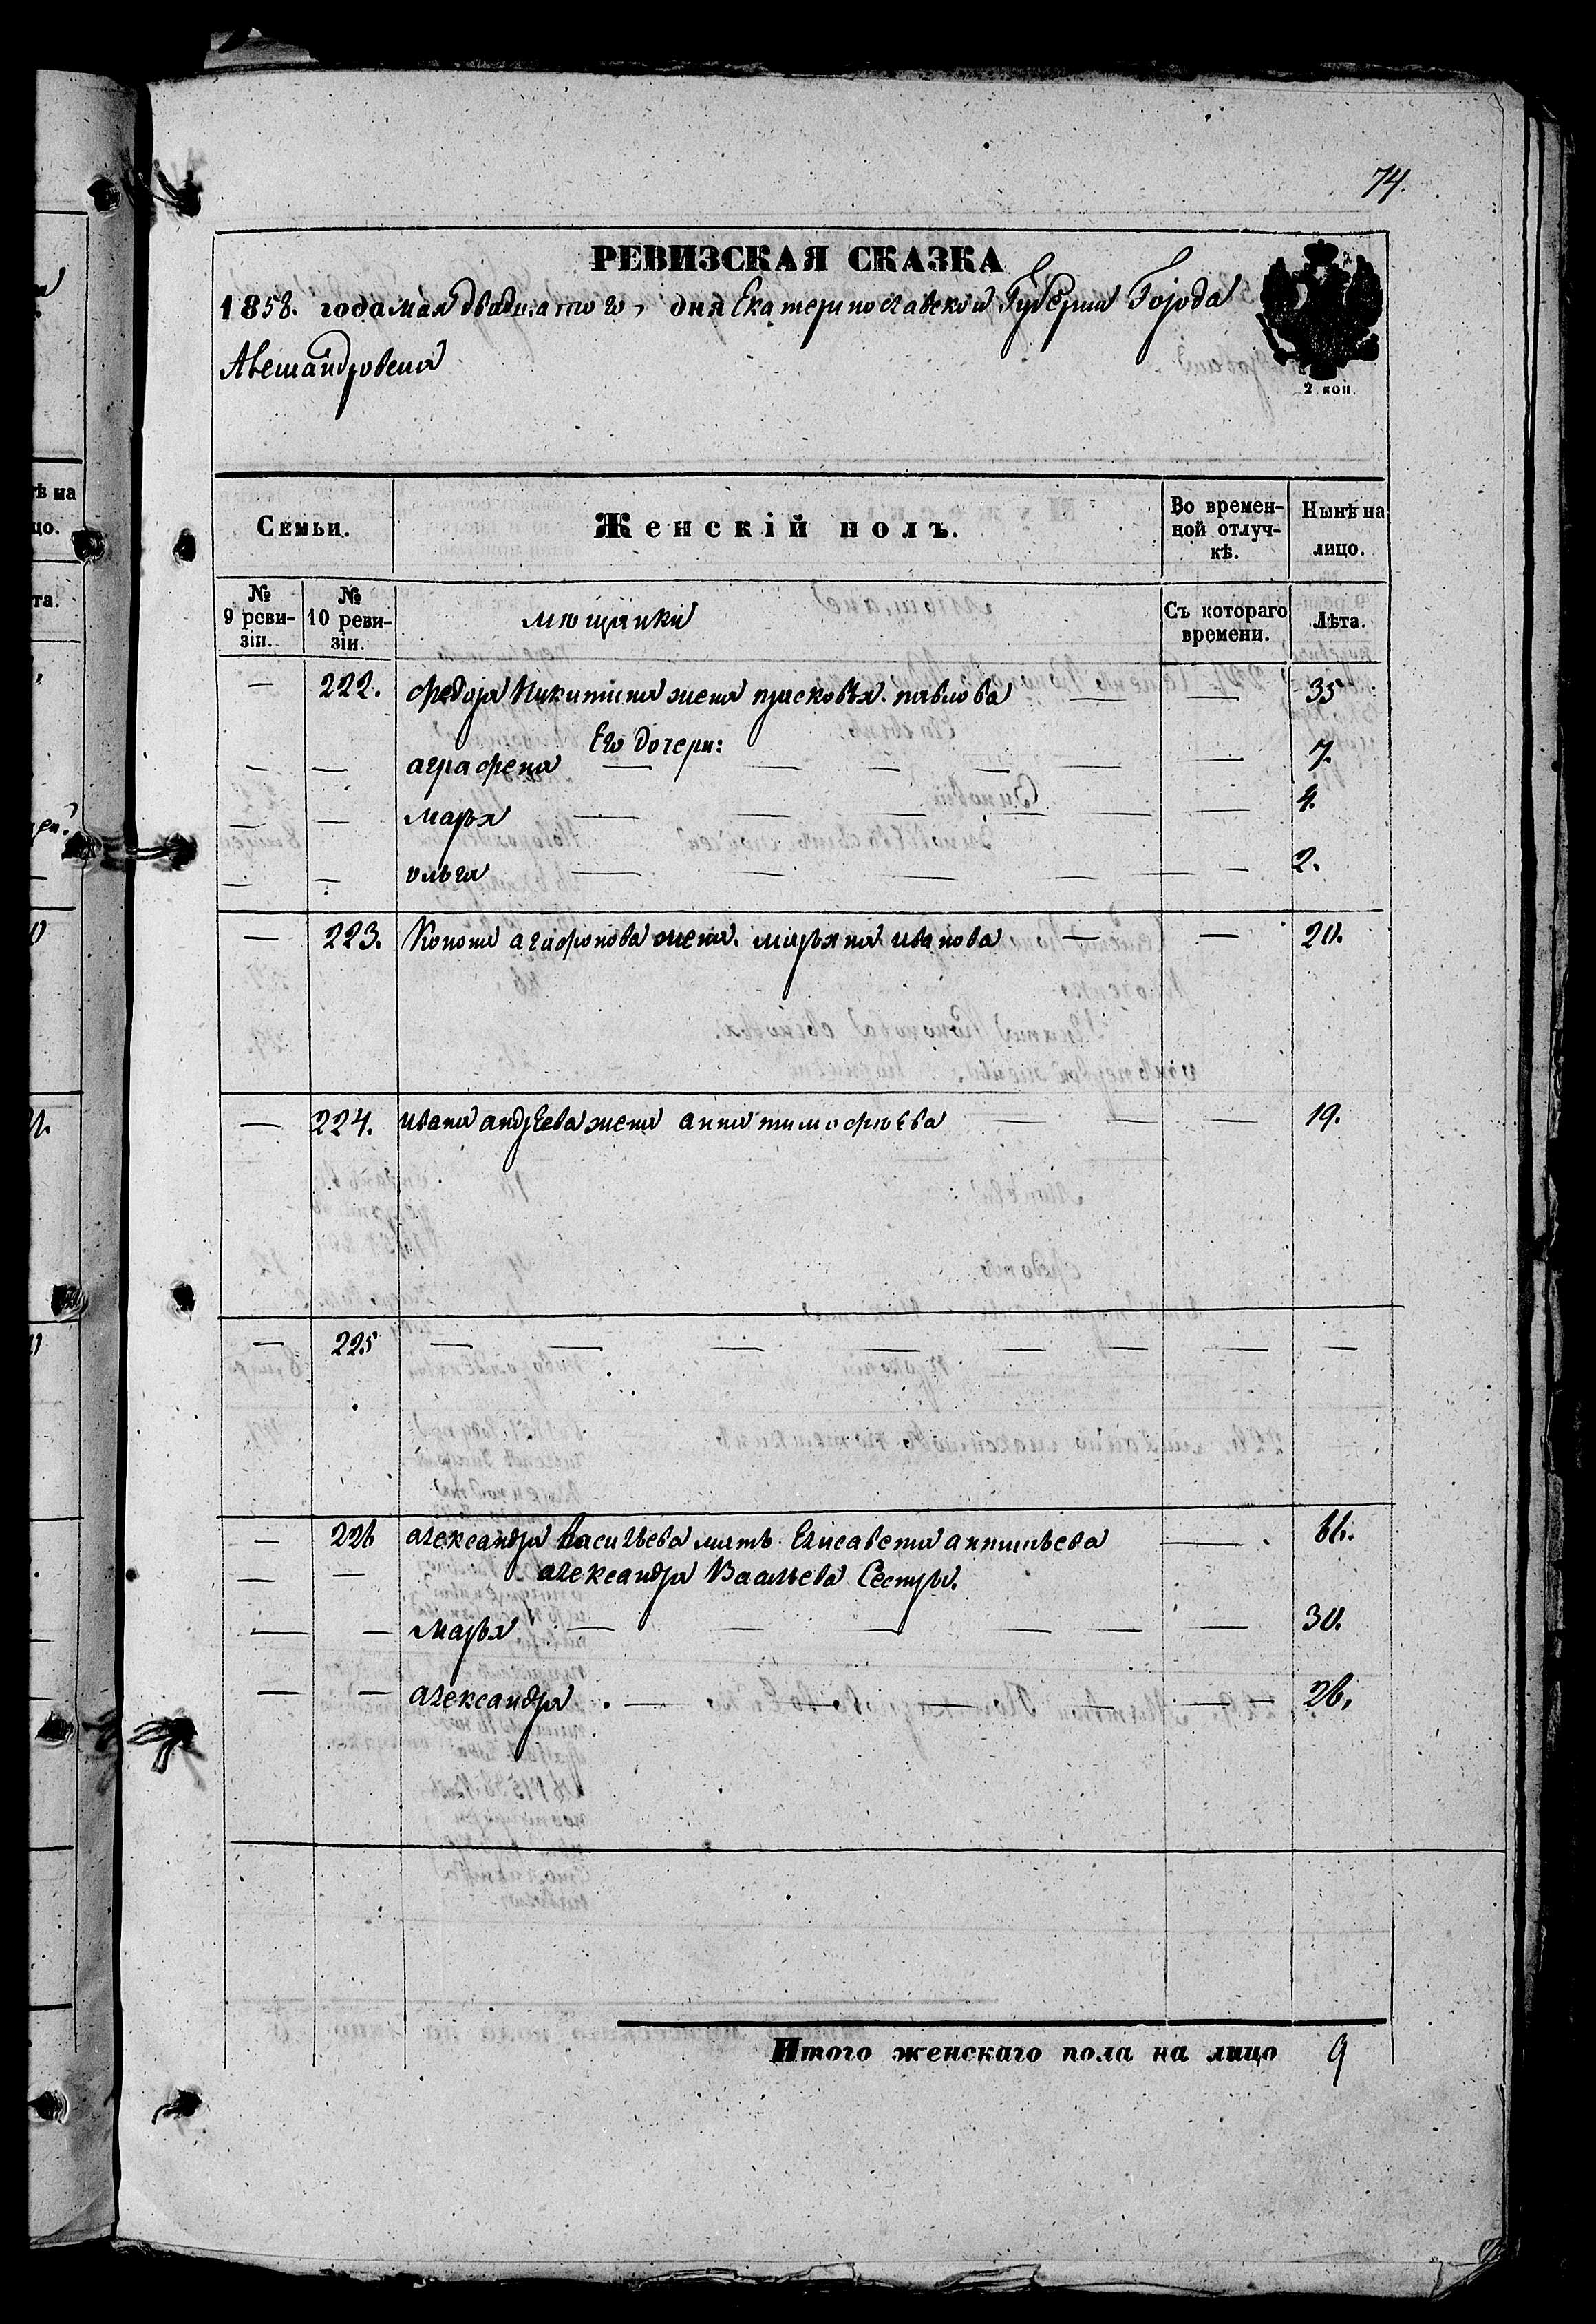 74.
РЕВИЗСКАЯ СКАЗКА
1858. года мая двадцатого дня Екатеринославской Губернии Города
Александровска
2 коп.
Семьи.
Женскій полъ.
Во времен-
ной отлуч-
кѣ.
Нынѣ на
лицо.
№
9 реви-
зіи.
№
10 реви-
зіи.
мѣщанки
Съ котораго
времени.
Лѣта.
— 222. федора Никитина жена прасковья павлова — — 35
Его дочери:
— — аграфена — — — — — — 7.
— — марья — — — — — — 4.
— — ольга — — — — — — 2.
— 223. Конона агафонова жена. марьяна иванова — — 20.
— 224. ивана андреева жена анна тимофѣева — — — 19.
— 225 — — — — — — — — —
— 226 александра Васильева мать Елисавета антипьева — 66.
— — александра Васильева Сестры.
— — марья — — — — — — 30.
— — александра — — — — — — 26.
Итого женскаго пола на лицо 9